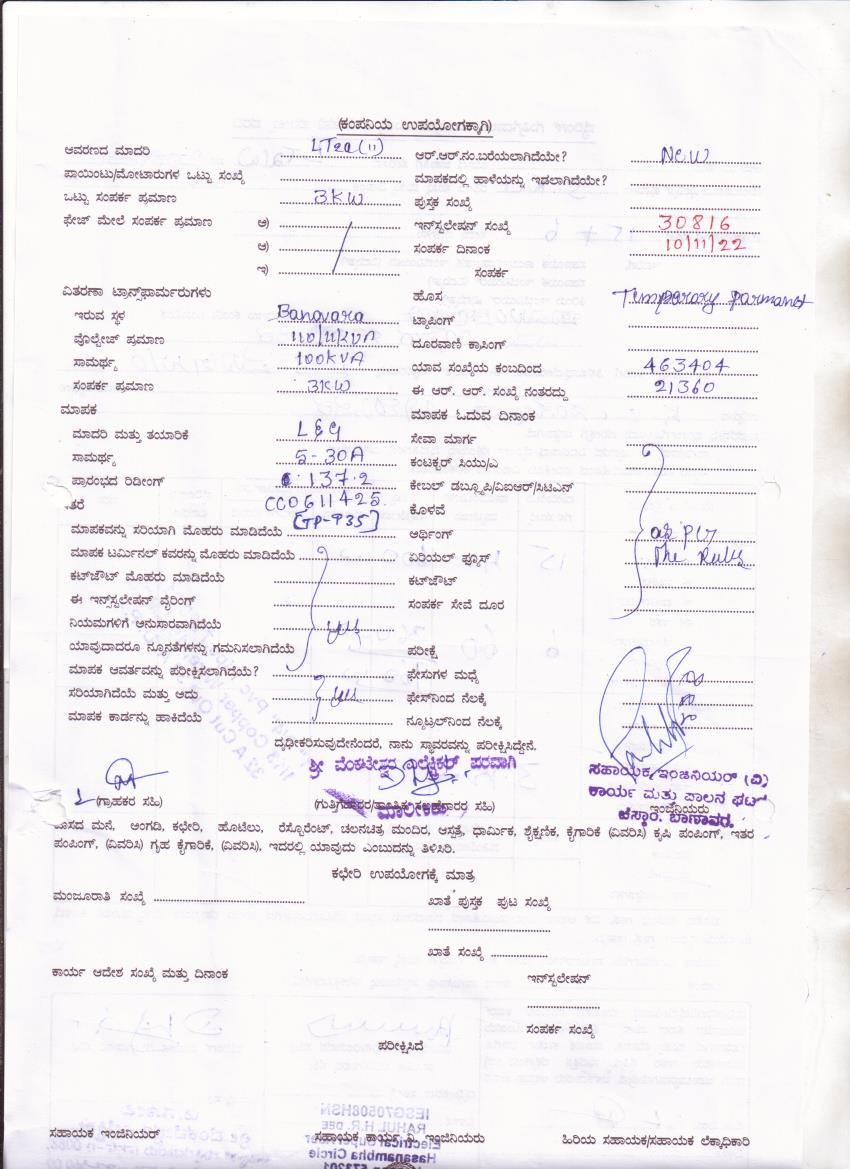 (ಕಂಪನಿಯ ಉಪಯೋಗಕ್ಕಾಗಿ)
ಆವರಣದ ಮಾದರಿ LT2a(ii) ಆರ್.ಆರ್.ನಂ.ಬರೆಯಲಾಗಿದೆಯೇ? New
ಪಾಯಿಂಟು/ಮೋಟಾರುಗಳ ಒಟ್ಟು ಸಂಖ್ಯೆ ಮಾಪಕದಲ್ಲಿ ಹಾಳೆಯನ್ನು ಇಡಲಾಗಿದೆಯೇ?
ಒಟ್ಟು ಸಂಪರ್ಕ ಪ್ರಮಾಣ 3KW ಪುಸ್ತಕ ಸಂಖ್ಯೆ
ಫೇಜ್ ಮೇಲೆ ಸಂಪರ್ಕ ಪ್ರಮಾಣ ಅ) ಇನ್‌ಸ್ಟಲೇಷನ್ ಸಂಖ್ಯೆ 30816
ಆ) ಸಂಪರ್ಕ ದಿನಾಂಕ 10/11/22
ಇ) ಸಂಪರ್ಕ
ವಿತರಣಾ ಟ್ರಾನ್ಸ್‌ಫಾರ್ಮರುಗಳು ಹೊಸ Temporary parmanet
ಇರುವ ಸ್ಥಳ Banavara ಟ್ಯಾಪಿಂಗ್
ವೋಲ್ಟೇಜ್ ಪ್ರಮಾಣ 110/11KVA ದೂರವಾಣಿ ಕ್ರಾಸಿಂಗ್
ಸಾಮರ್ಥ್ಯ 100KVA ಯಾವ ಸಂಖ್ಯೆಯ ಕಂಬದಿಂದ 463404
ಸಂಪರ್ಕ ಪ್ರಮಾಣ 3KW ಈ ಆರ್. ಆರ್. ಸಂಖ್ಯೆ ನಂತರದ್ದು 21360
ಮಾಪಕ ಮಾಪಕ ಓದುವ ದಿನಾಂಕ
ಮಾದರಿ ಮತ್ತು ತಯಾರಿಕೆ L&G ಸೇವಾ ಮಾರ್ಗ
ಸಾಮರ್ಥ್ಯ 5-30A ಕಂಟಕ್ಟರ್ ಸಿಯು/ಎ
ಪ್ರಾರಂಭದ ರಿಡೀಂಗ್ 137.2 ಕೇಬಲ್ ಡಬ್ಲ್ಯೂಪಿ/ವಿಐಆರ್/ಸಿಟಿಎನ್
ತರೆ CC0611425 ಕೊಳವೆ
[TP-935]
ಮಾಪಕವನ್ನು ಸರಿಯಾಗಿ ಮೊಹರು ಮಾಡಿದೆಯೆ ಅರ್ಥಿಂಗ್ as per
ಮಾಪಕ ಟರ್ಮಿನಲ್ ಕವರನ್ನು ಮೊಹರು ಮಾಡಿದೆಯೆ ಏರಿಯಲ್ ಫ್ಯೂಸ್ The Rules
ಕಟ್‌ಔಟ್ ಮೊಹರು ಮಾಡಿದೆಯೆ ಕಟ್‌ಔಟ್
ಈ ಇನ್‌ಸ್ಟಲೇಷನ್ ವೈರಿಂಗ್ ಸಂಪರ್ಕ ಸೇವೆ ದೂರ
ನಿಯಮಗಳಿಗೆ ಅನುಸಾರವಾಗಿದೆಯೆ yes
ಯಾವುದಾದರೂ ನ್ಯೂನತೆಗಳನ್ನು ಗಮನಿಸಲಾಗಿದೆಯೆ ಪರೀಕ್ಷೆ
ಮಾಪಕ ಆವರ್ತವನ್ನು ಪರೀಕ್ಷಿಸಲಾಗಿದೆಯೆ? ಫೇಸುಗಳ ಮಧ್ಯೆ
ಸರಿಯಾಗಿದೆಯೆ ಮತ್ತು ಅದು yes ಫೇಸ್‌ನಿಂದ ನೆಲಕ್ಕೆ
ಮಾಪಕ ಕಾರ್ಡನ್ನು ಹಾಕಿದೆಯೆ ನ್ಯೂಟ್ರಲ್‌ನಿಂದ ನೆಲಕ್ಕೆ
ದೃಢೀಕರಿಸುವುದೇನೆಂದರೆ, ನಾನು ಸ್ಥಾವರವನ್ನು ಪರೀಕ್ಷಿಸಿದ್ದೇನೆ.
ಶ್ರೀ ವೆಂಕಟೇಶ್ವರ ಎಲೆಕ್ಟ್ರಿಕಲ್ ಪರವಾಗಿ
ಸಹಾಯಕ ಇಂಜಿನಿಯರ್ (ವಿ)
ಕಾರ್ಯ ಮತ್ತು ಪಾಲನ ಘಟಕ
(ಗ್ರಾಹಕರ ಸಹಿ) ಸಹಿ) ಇಂಜಿನಿಯರು
ಮಾಲೀಕರು
ಚೆಸ್ಕಾಂ. ಬಾಣಾವರ.
ಹೊಸದ ಮನೆ, ಅಂಗಡಿ, ಕಛೇರಿ, ಹೊಟೇಲು, ರೆಸ್ಟೋರೆಂಟ್, ಚಲನಚಿತ್ರ ಮಂದಿರ, ಆಸ್ಪತ್ರೆ, ಧಾರ್ಮಿಕ, ಶೈಕ್ಷಣಿಕ, ಕೈಗಾರಿಕೆ (ವಿವರಿಸಿ) ಕೃಷಿ ಪಂಪಿಂಗ್, ಇತರ
ಪಂಪಿಂಗ್, (ವಿವರಿಸಿ) ಗೃಹ ಕೈಗಾರಿಕೆ, (ವಿವರಿಸಿ), ಇದರಲ್ಲಿ ಯಾವುದು ಎಂಬುದನ್ನು ತಿಳಿಸಿರಿ.
ಕಛೇರಿ ಉಪಯೋಗಕ್ಕೆ ಮಾತ್ರ
ಮಂಜೂರಾತಿ ಸಂಖ್ಯೆ ಖಾತೆ ಪುಸ್ತಕ ಪುಟ ಸಂಖ್ಯೆ
ಖಾತೆ ಸಂಖ್ಯೆ
ಕಾರ್ಯ ಆದೇಶ ಸಂಖ್ಯೆ ಮತ್ತು ದಿನಾಂಕ ಇನ್‌ಸ್ಟಲೇಷನ್
ಸಂಪರ್ಕ ಸಂಖ್ಯೆ
ಪರೀಕ್ಷಿಸಿದೆ
IESG70508HSN
RAHUL H.R. DEE
Electrical Supervisor
ಸಹಾಯಕ ಇಂಜಿನಿಯರ್ ಸಹಾಯಕ ಕಾರ್ಯ ನಿ. ಇಂಜಿನಿಯರು ಹಿರಿಯ ಸಹಾಯಕ/ಸಹಾಯಕ ಲೆಕ್ಕಾಧಿಕಾರಿ
Hasanambha Circle
573201